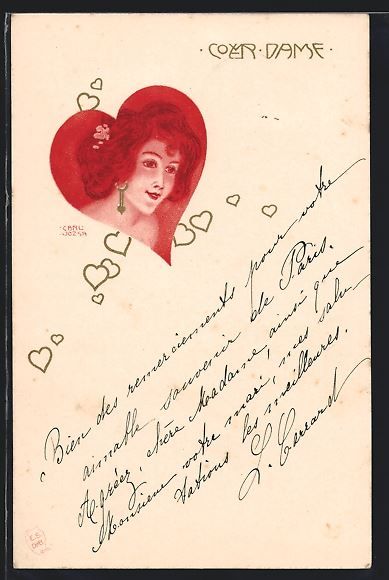 · COEUR · DAME ·
CARL
JOZSA
Bien des remerciements pour votre
aimable souvenir de Paris.
Agréez, chère Madame, ainsi que
Monsieur votre mari, mes salu-
tations les meilleures.
L. Cerrard